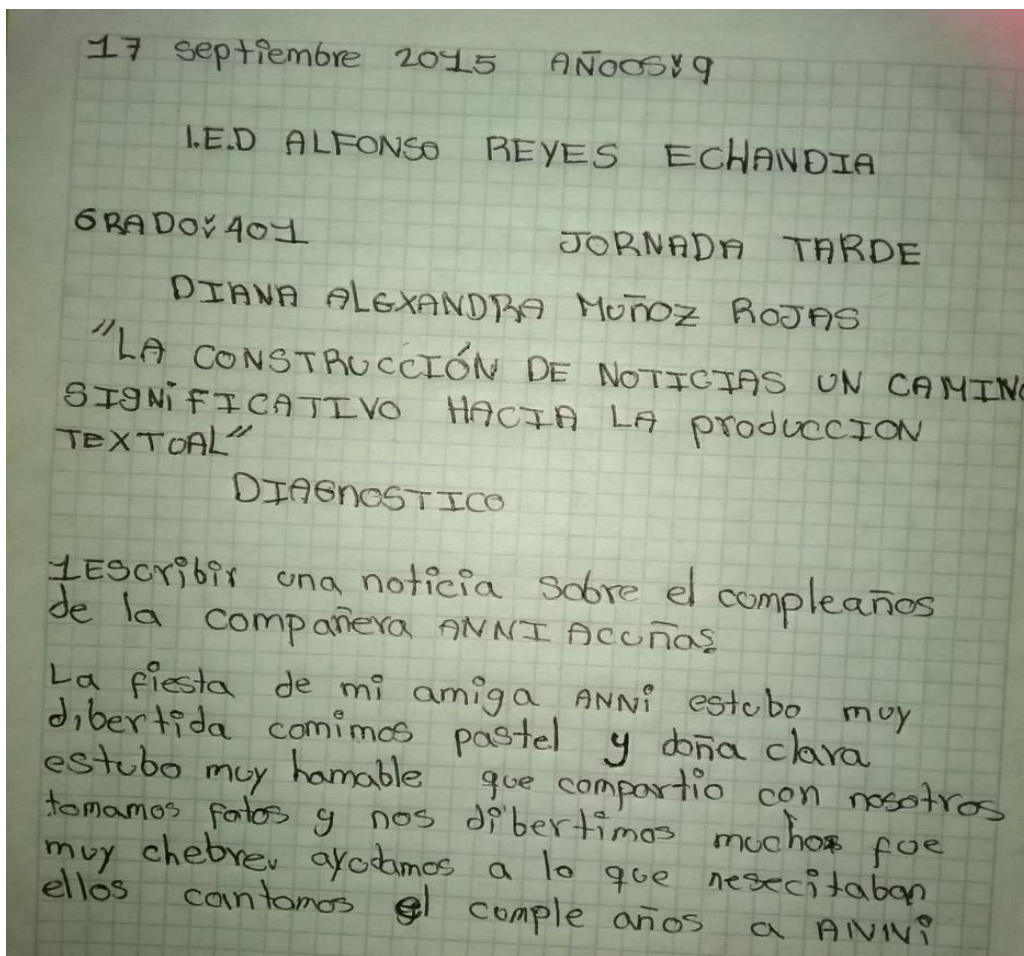 17 septiembre 2015 AÑOOS: 9
I.E.D ALFONSO REYES ECHANDIA
GRADO: 401 JORNADA TARDE
DIANA ALEXANDRA MUÑOZ ROJAS
"LA CONSTRUCCIÓN DE NOTICIAS UN CAMINO
SIGNiFICATIVO HACIA LA producCION
TEXTUAL"
DIAGNOSTICO
1 EScribir una noticia sobre el compleaños
de la compañera ANNI ACUÑAS
La fiesta de mi amiga ANNi estubo muy
dibertida comimos pastel y doña clara
estubo muy hamable que compartio con nosotros
tomamos fotos y nos dibertimos mucho fue
muy chebre, ayudamos a lo que nesecitaban
ellos cantamos el comple años a ANNi